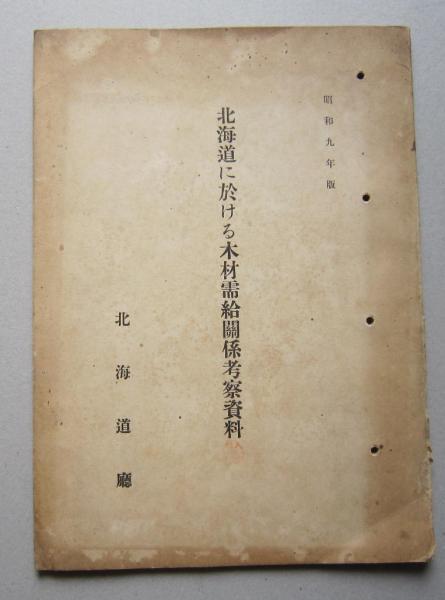 昭和九年版
北海道に於ける木材需給關係考察資料
北海道廳